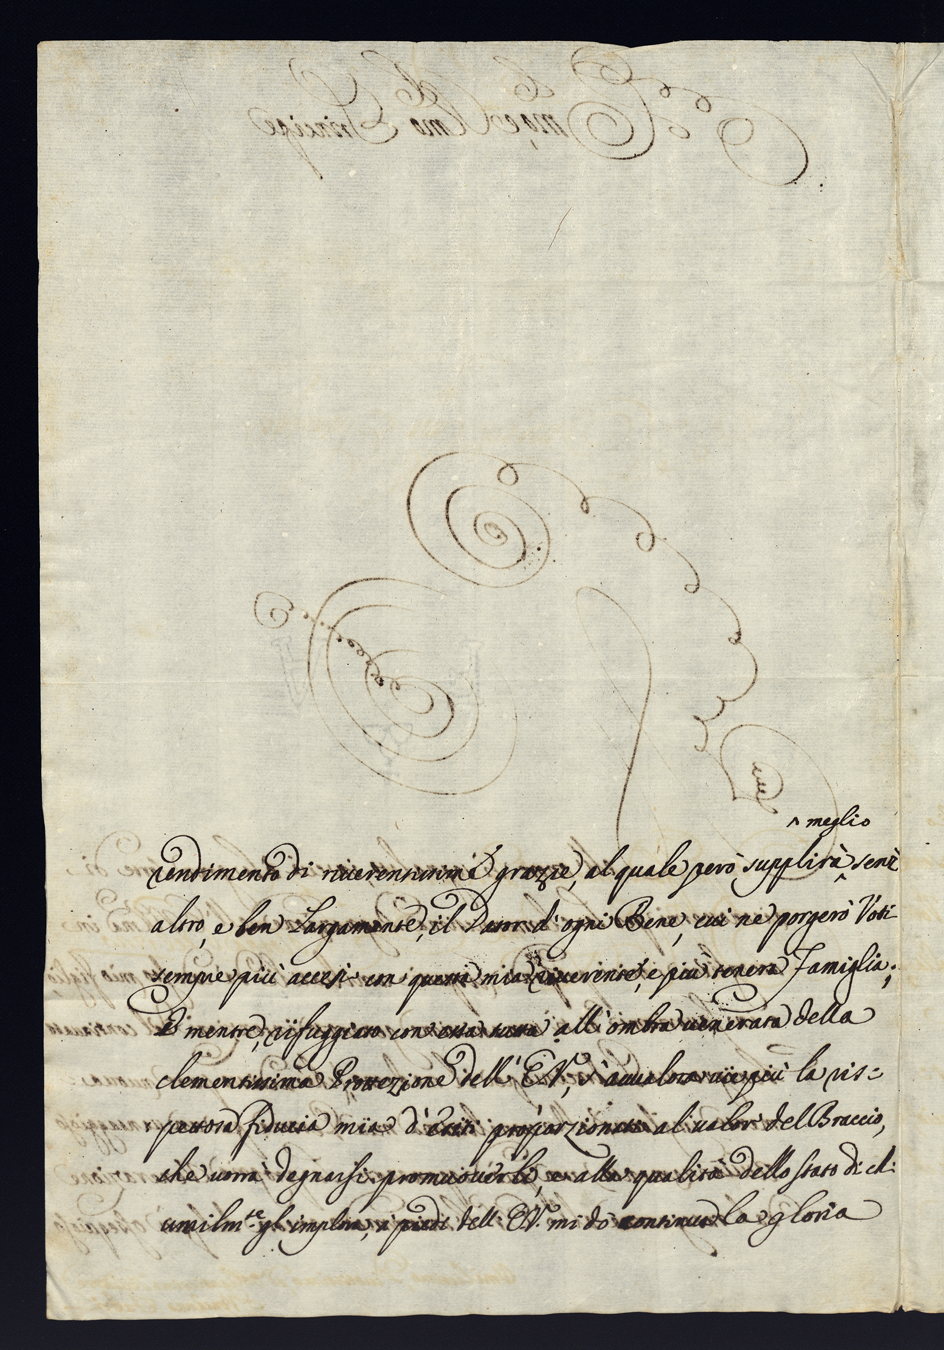 ^ meglio
rendimento di riverentissime grazie, al quale però supplirà ^ senz'
altro, e ben largamente, il Dator d'ogni Bene, cui ne porgerò Voti
sempre più accesi con questa mia riverente, e più tenera Famiglia;
E mentre, rifuggiato con essa tutta all'ombra venerata della
clementissima Protezione dell'E.V., s'avvalora vie più la ris=
pettosa fiducia mia d'esiti proporzionati al valor del Braccio,
che vorrà degnarsi promuoverli, e alla qualità dello stato di chi
umilm.te gl'implora, a piedi dell'E.V. mi do continuo la gloria